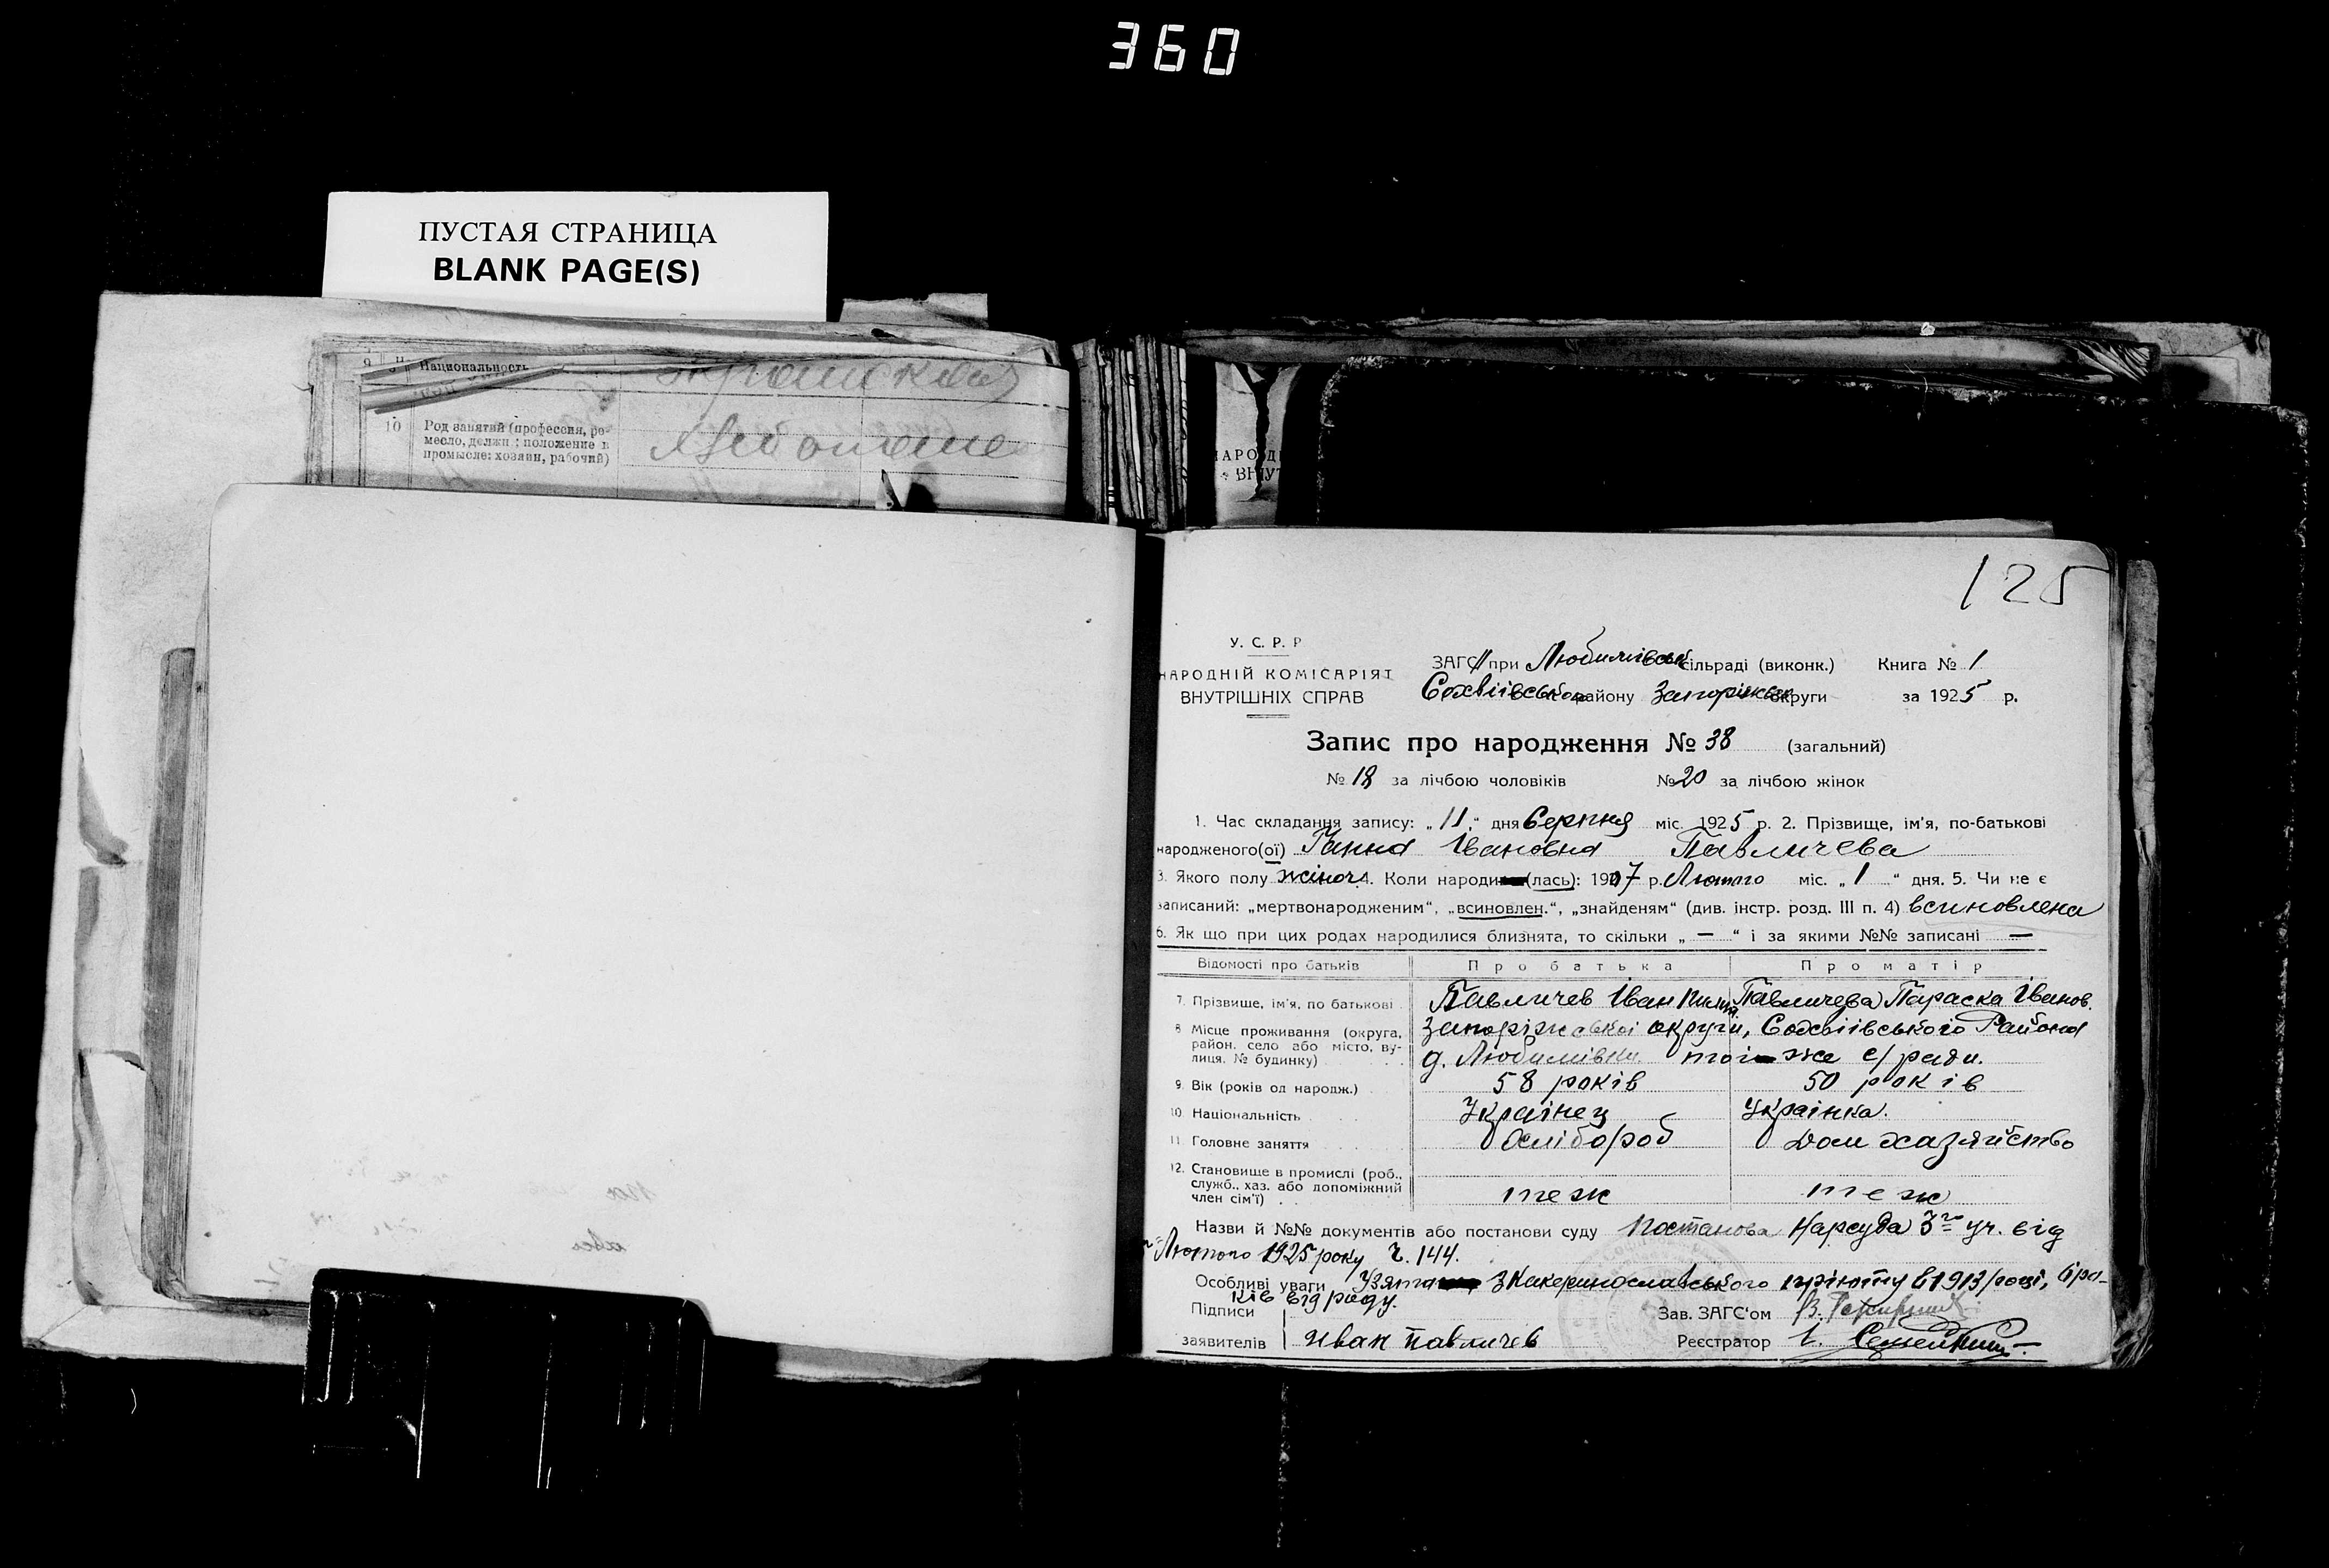 360
ПУСТАЯ СТРАНИЦА
BLANK PAGE(S)
9 Национальность
10 Род занятий (профессия, ре-
месло, должн.: положение в
промысле: хозяин, рабочий)
125
У. С. Р. Р
НАРОДНІЙ КОМІСАРІЯТ
ВНУТРІШНІХ СПРАВ
ЗАГС при Любимівськ сільраді (виконк.) Книга № 1
району Запоріжськ округи за 1925 р.
Запис про народження № 38 (загальний)
№ 18 за лічбою чоловіків № 20 за лічбою жінок
1. Час складання запису: „11“ дня Серпня міс. 1925 р. 2. Прізвище, ім'я, по-батькові
народженого(ої) Ганна Івановна Павличева
3. Якого полу жіноч. 4. Коли народи (лась): 1907 р. Лютого міс. „1“ дня. 5. Чи не є
записаний: „мертвонародженим“, „всиновлен.“, „знайденям“ (див. інстр. розд. III п. 4) всиновлена
6. Як що при цих родах народилися близнята, то скільки „ — “ і за якими №№ записані —
Відомості про батьків Про батька Про матір
7. Прізвище, ім'я, по батькові Павличев Іван Павличева Параска Іванов.
8 Місце проживання (округа, Запоріжської округи, Софіївського Района
район, село або місто, ву-
лиця, № будинку) д. Любимівки тої-же с/ради.
9. Вік (років од народж.) 58 років 50 років
10. Національність Українец Українка.
11. Головне заняття Хлібороб Дом хазяйство
12. Становище в промислі (роб.,
служб., хаз. або допоміжний
член сім'ї) теж теж
Назви й №№ документів або постанови суду Постанова Нарсуда 3го уч. від
Лютого 1925 року ч. 144.
Особливі уваги Узята з Катеринославського пріюту в 1913 році, 6 ро-
ків від роду.
Підписи Зав. ЗАГС'ом
заявителів Иван Павличев Реєстратор